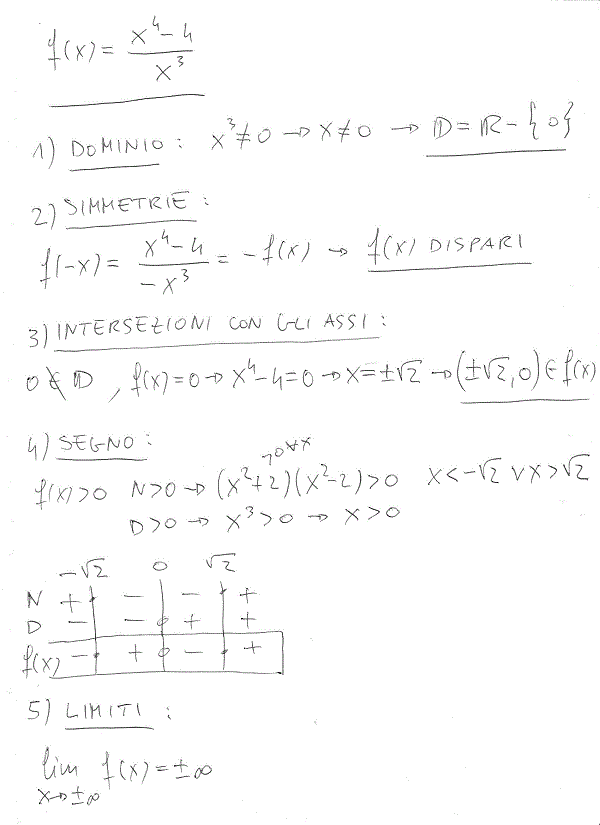 f(x) = (x⁴-4)/x³
1) DOMINIO : x³≠0 → x≠0 → D = R - {0}
2) SIMMETRIE :
f(-x) = (x⁴-4)/(-x³) = -f(x) → f(x) DISPARI
3) INTERSEZIONI CON GLI ASSI :
0 ∉ D , f(x)=0 → x⁴-4=0 → x=±√2 → (±√2, 0) ∈ f(x)
4) SEGNO :
>0 ∀x
f(x)>0 N>0 → (x²+2)(x²-2)>0 x<-√2 ∨ x>√2
D>0 → x³>0 → x>0
-√2 0 √2
N + - - +
D - - + +
f(x) - + - +
5) LIMITI :
lim f(x) = ±∞
x→±∞